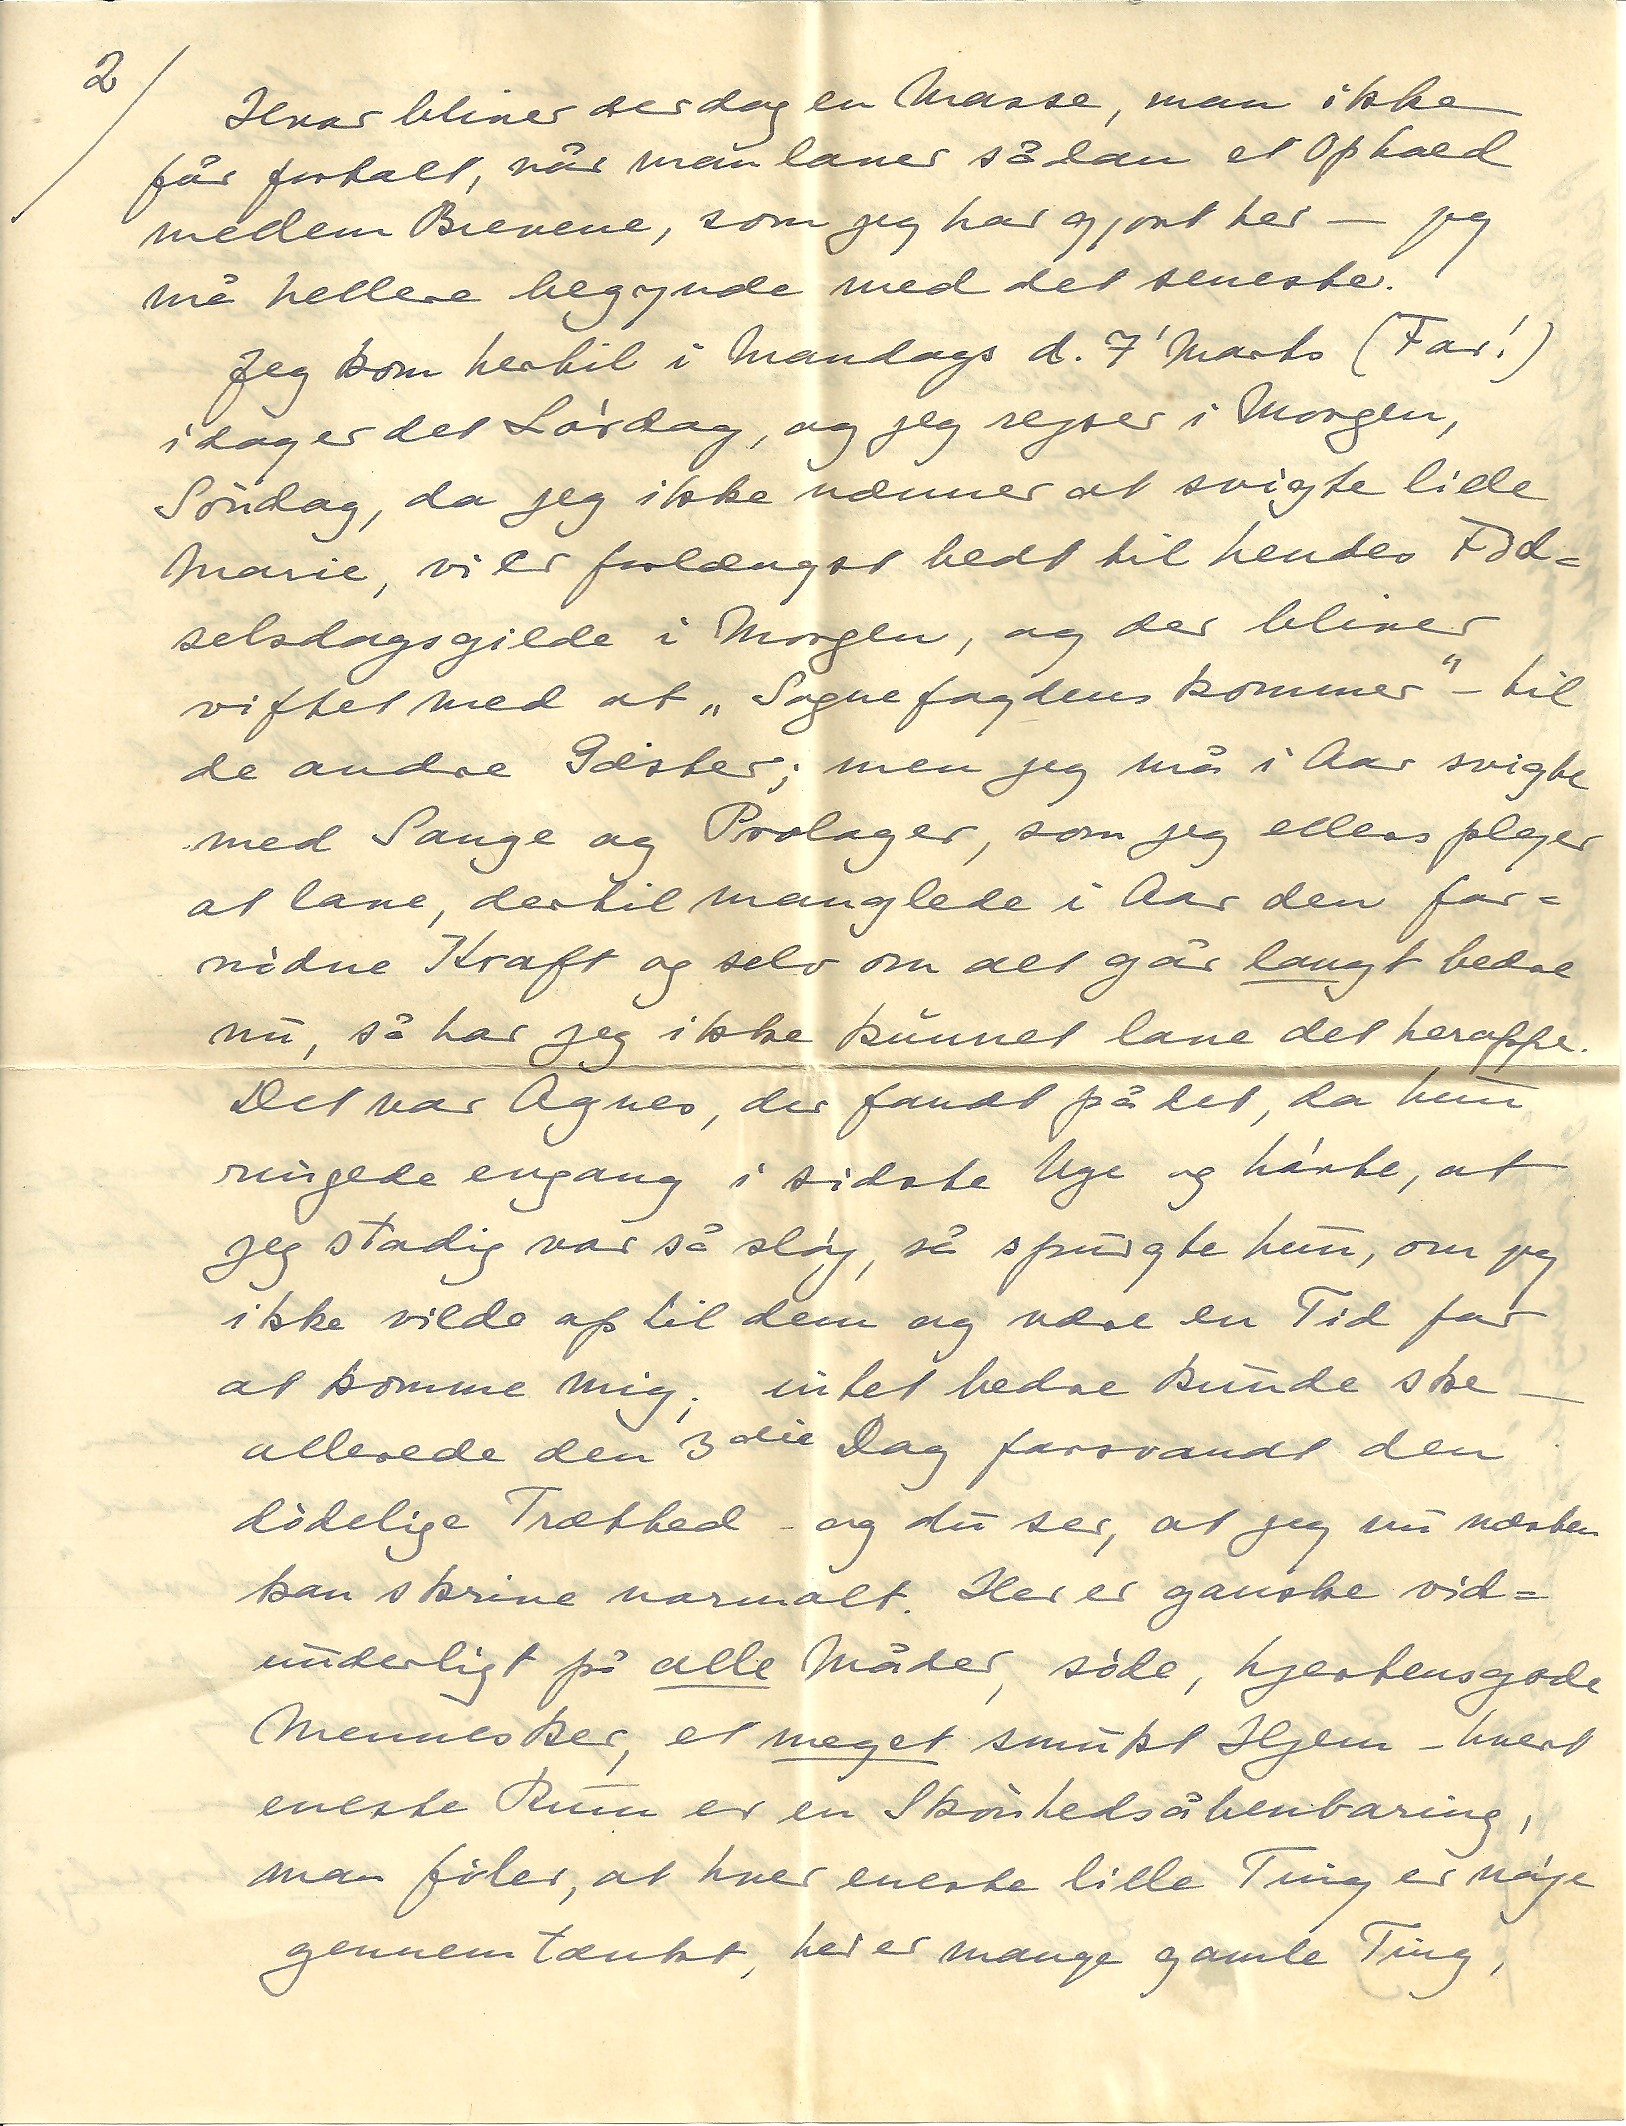 2/
Hvor bliver der dog en Masse, man ikke
får fortalt, når man laver sådan et Ophold
mellem Brevene, som jeg har gjort her — jeg
må hellere begynde med det seneste.
Jeg kom hertil i Mandags d. 7' Marts (Far!)
idag er det Lørdag, og jeg rejser i Morgen,
Søndag, da jeg ikke nænner at svigte lille
Marie, vi er forlængst bedt til hendes Fød=
selsdagsgilde i Morgen, og der bliver
viftet med at „Sognefogdens kommer" – til
de andre Gæster; men jeg må i Aar svigte
med Sange og Prologer, som jeg ellers plejer
at lave, dertil manglede i Aar den for=
nødne Kraft og selv om det går langt bedre
nu, så har jeg ikke kunnet lave det heroppe.
Det var Agnes, der fandt på det, da hun
ringede engang i sidste Uge og hørte, at
jeg stadig var så sløj, så spurgte hun, om jeg
ikke vilde op til dem og være en Tid for
at komme mig; intet bedre kunde ske —
allerede den 3die Dag forsvandt den
dødelige Træthed – og du ser, at jeg nu næsten
kan skrive normalt. Her er ganske vid=
underligt på alle Måder, søde, hjertensgode
Mennesker, et meget smukt Hjem – hvert
eneste Rum er en Skønhedsåbenbaring,
man føler, at hver eneste lille Ting er nøje
gennemtænkt, her er mange gamle Ting,